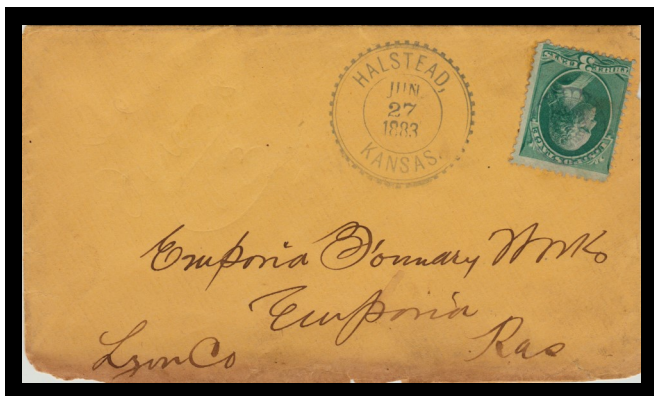 HALSTEAD,
JUN
27
1883
KANSAS.
Emporia Founnary Works
Emporia
Lyon Co Kas